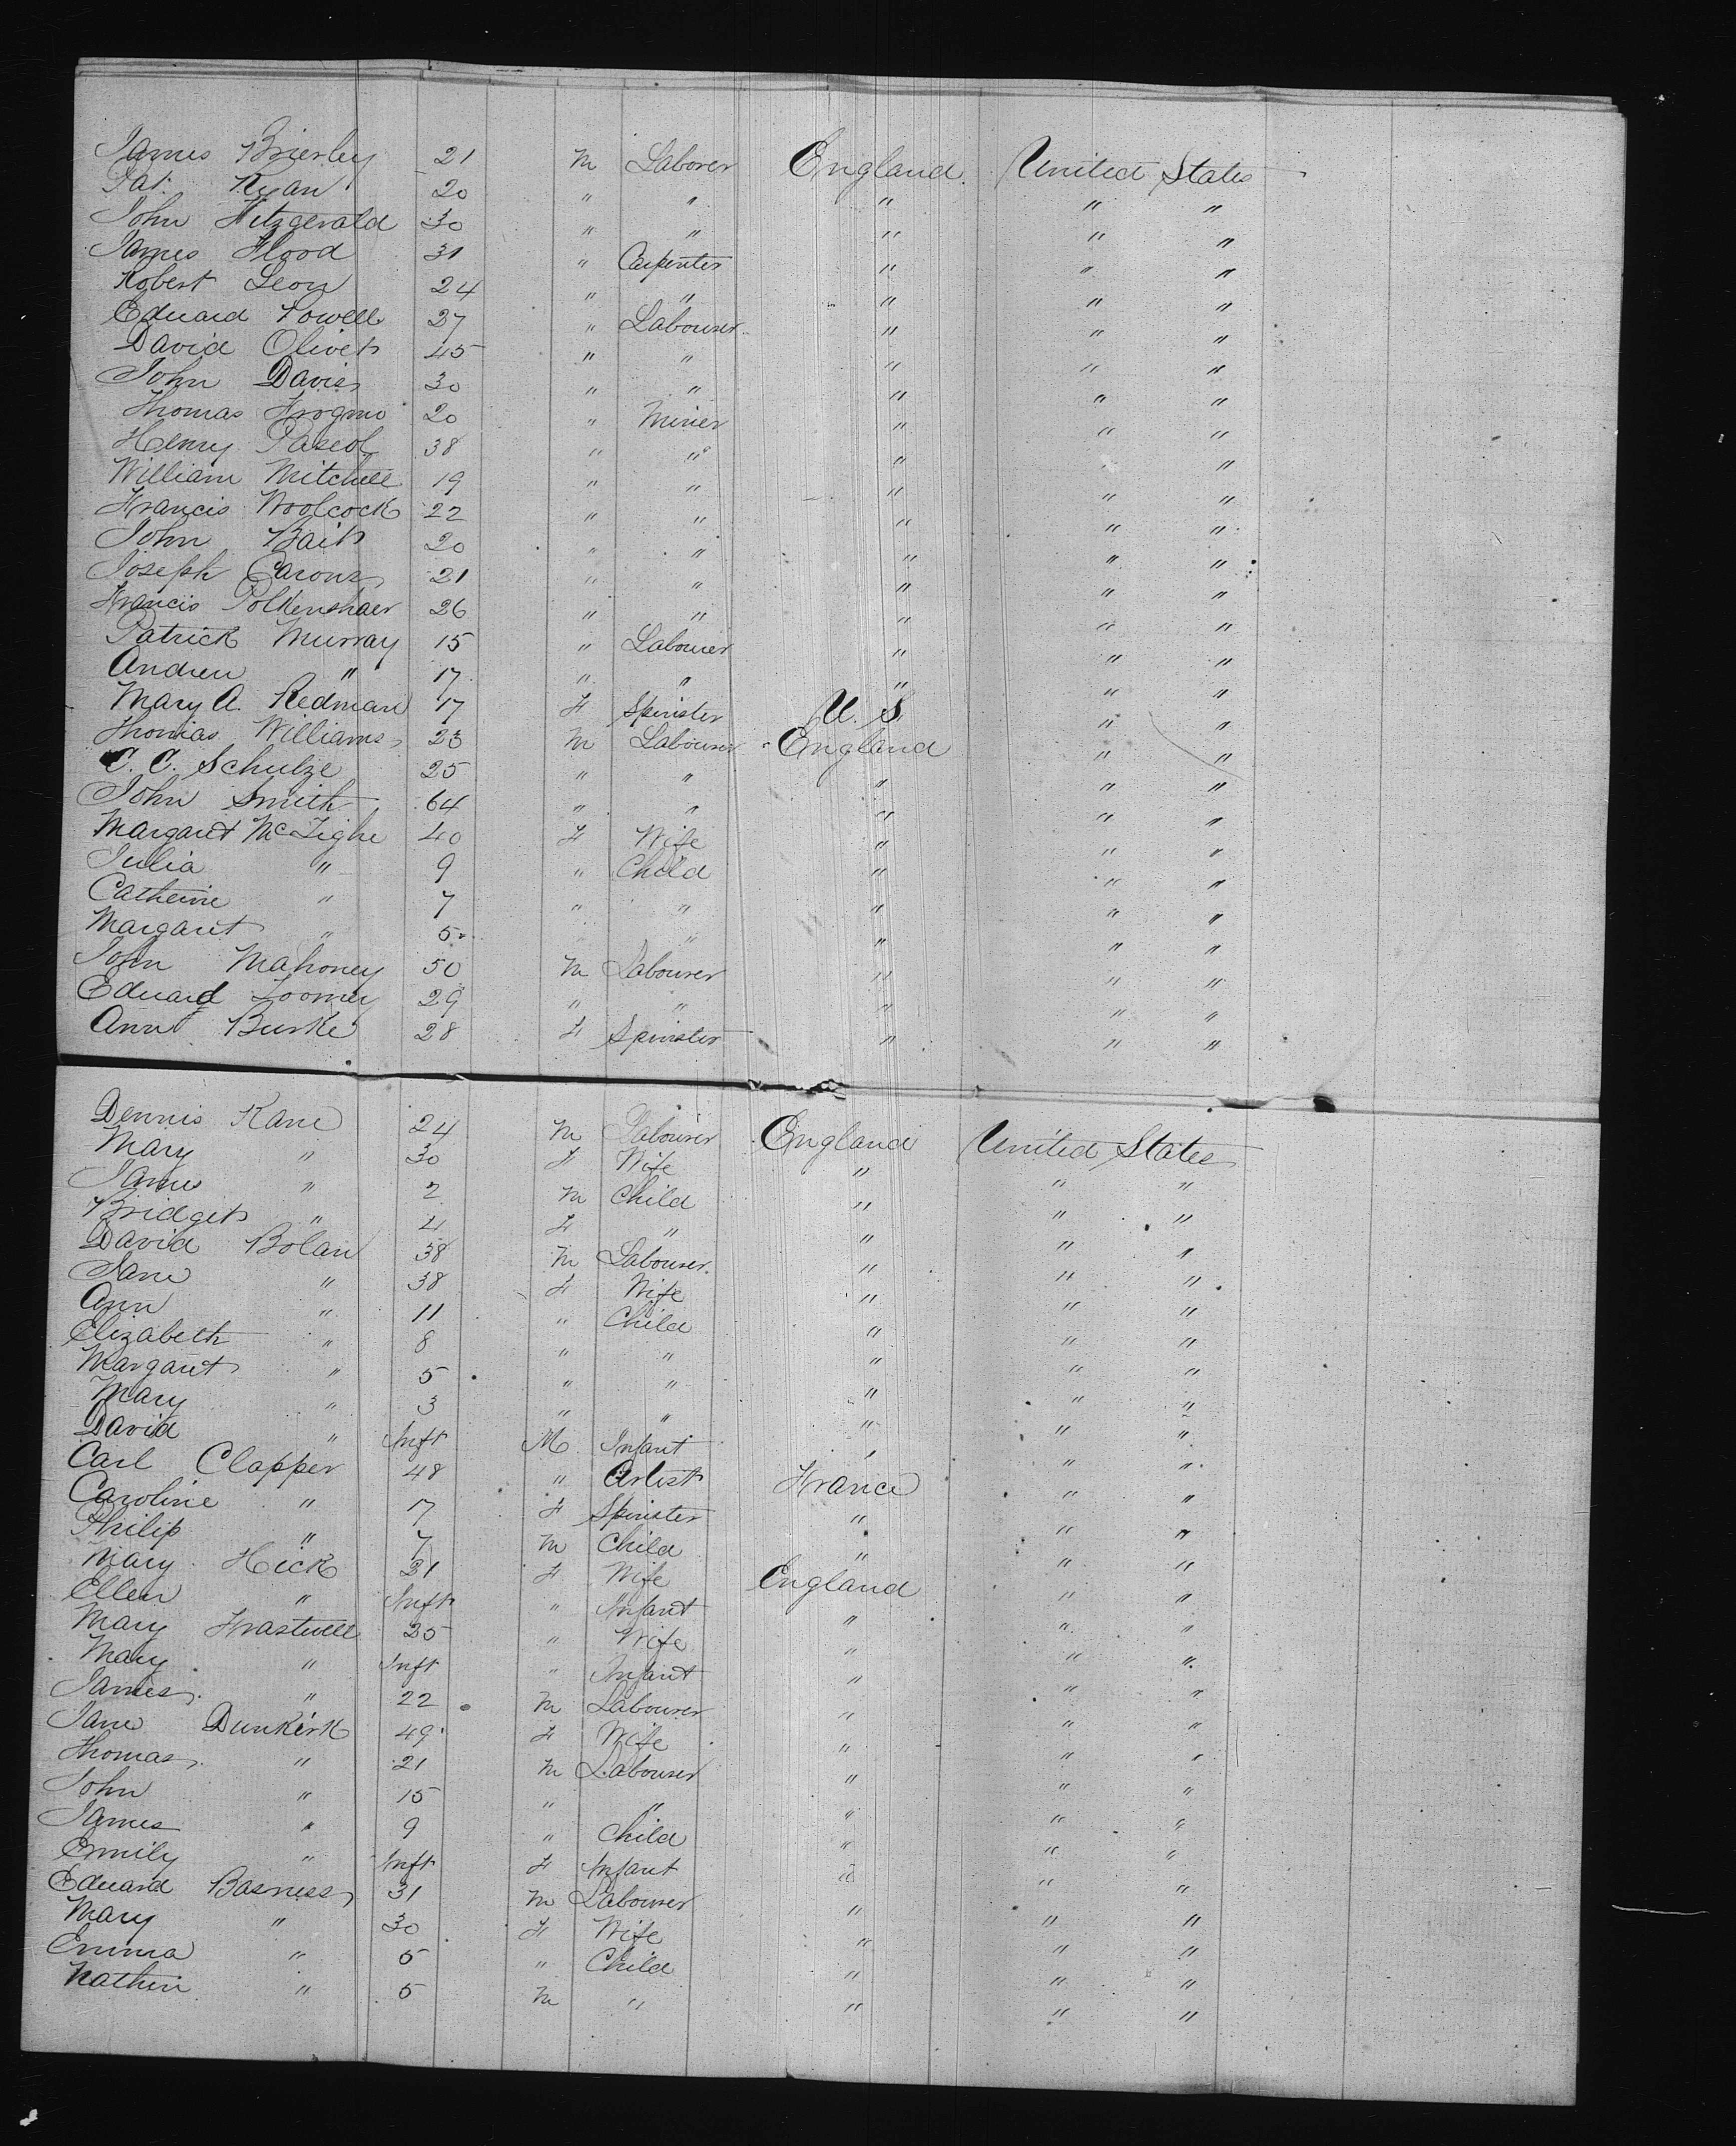 James Brierley 21 M Laborer England United States
Pat. Ryan 20 " " " " "
John Fitzgerald 30 " " " " "
James Flood 31 " Carpenter " " "
Robert Leon 24 " " " " "
Edward Powell 27 " Labourer " " "
David Oliver 45 " " " " "
John Davies 30 " " " " "
Thomas 20 " Miner " " "
Henry Pascol 38 " " " " "
William Mitchell 19 " " " " "
Francis Woolcock 22 " " " " "
John 20 " " " " "
Joseph 21 " " " " "
Francis Polkenshaer 26 " " " " "
Patrick Murray 15 " Labourer " " "
Andrew " 17 " " " " "
Mary A. Redman 17 F Spinster U. S. " "
Thomas Williams 23 M Labourer England " "
C. C. Schulze 25 " " " " "
John Smith 64 " " " " "
Margaret McTighe 40 F Wife " " "
Julia " 9 " Child " " "
Catherine " 7 " " " " "
Margaret " 5 " " " "
John Mahoney 50 M Labourer " " "
Edward Toomey 29 " " " " "
Ann Burke 28 F Spinster " " "
Dennis Kane 24 M Labourer England United States
Mary " 30 F Wife " " "
James " 2 M Child " " "
Bridget " 4 F " " " "
David Bolan 38 M Labourer " " "
Jane " 38 F Wife " " "
Ann " 11 " Child " " "
Elizabeth " 8 " " " " "
Margaret " 5 " " " " "
Mary " 3 " " " " "
David " Inft M Infant " " "
Carl Clapper 48 " Artist France " "
Caroline " 17 F Spinster " " "
Philip " 7 M Child " " "
Mary Hick 31 F Wife England " "
Ellen " Inft " Infant " " "
Mary 25 " Wife " " "
Mary " Inft " Infant " " "
James " 22 M Labourer " " "
Jane Dunkirk 49 F Wife " " "
Thomas " 21 M Labourer " " "
John " 15 " " " " "
James " 9 " Child " " "
Emily " Inft F Infant " " "
Edward Basness 31 M Labourer " " "
Mary " 30 F Wife " " "
Emma " 5 " Child " " "
Nathen " 5 M " " " "